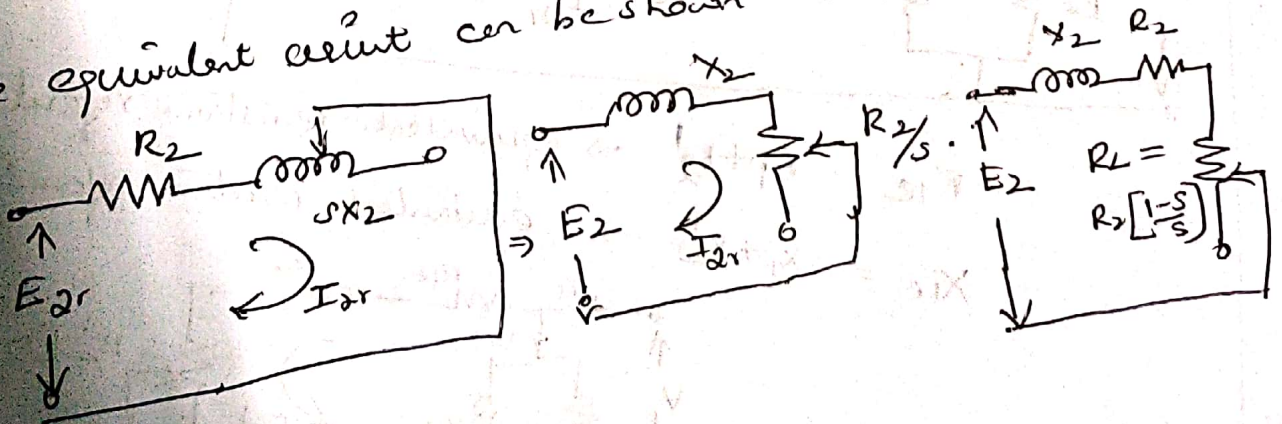 equivalent circuit can be shown
R2
SX2
E2r
I2r
⇒
X2
E2
I2r
R2/s .
X2 R2
E2
RL =
R2[1-s/s]